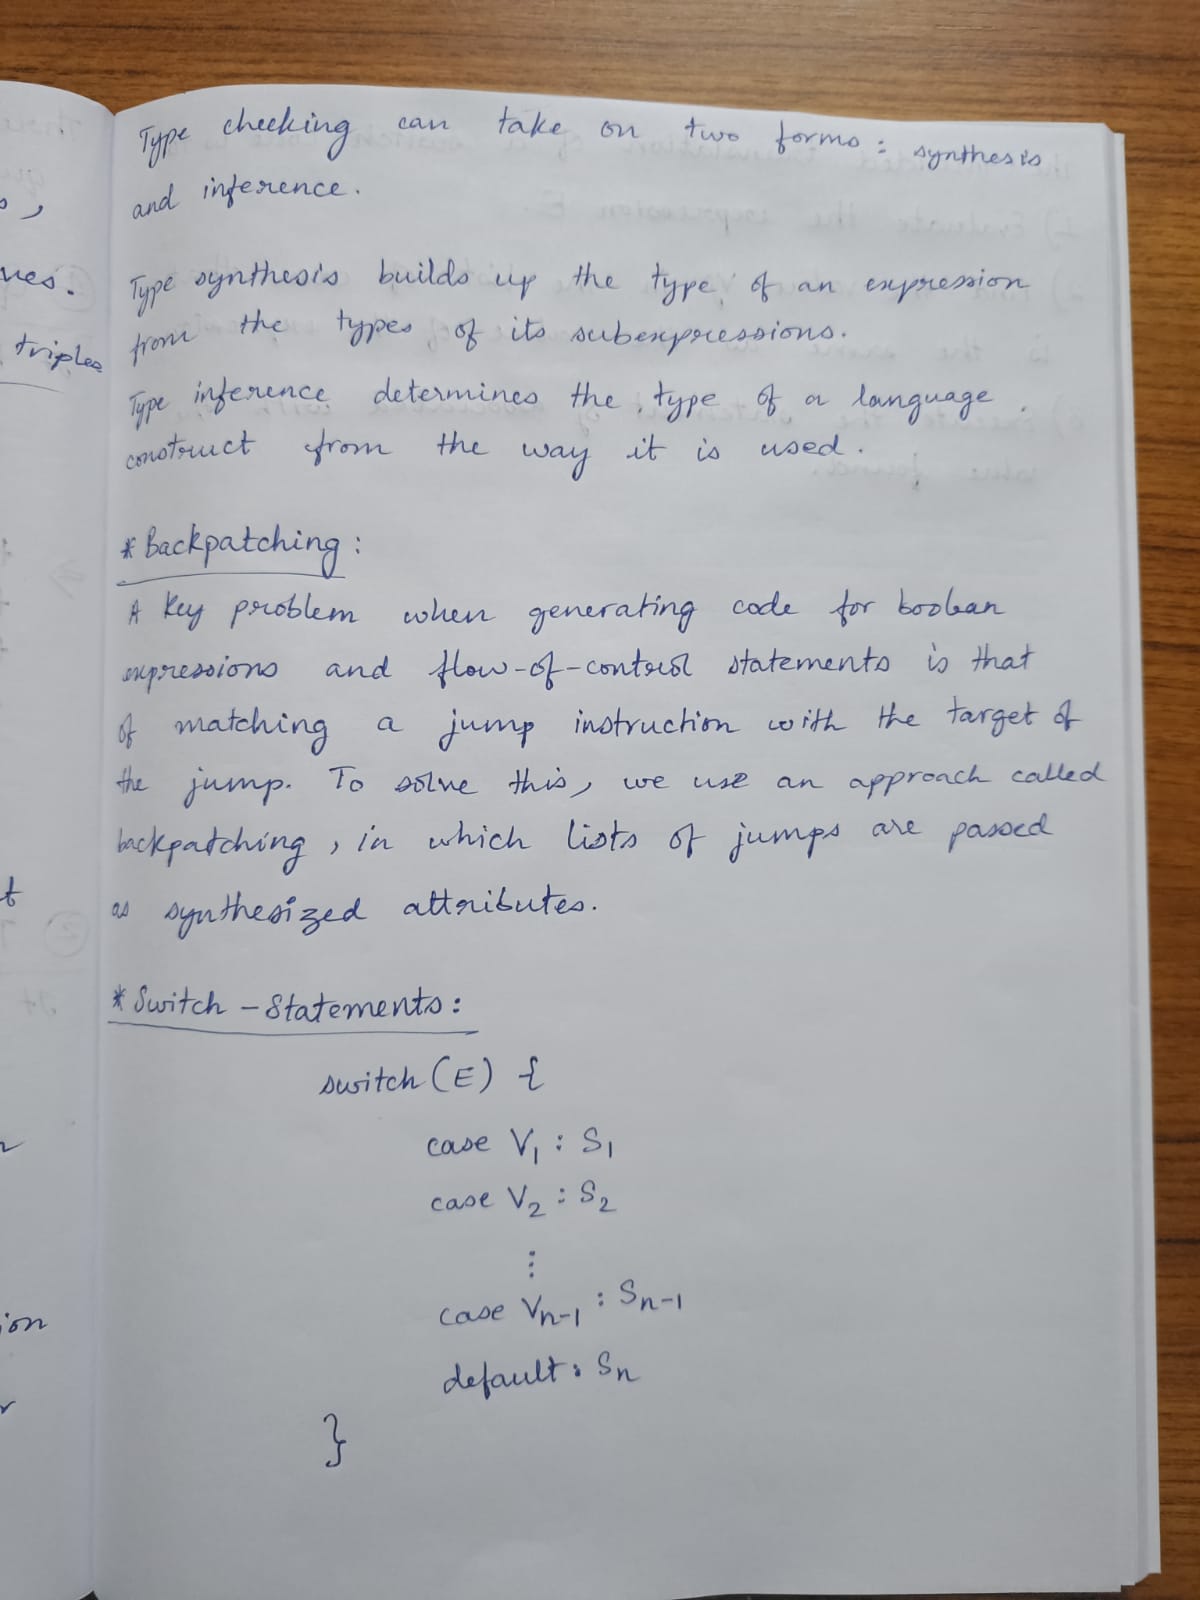 Type checking can take on two forms: synthesis
and inference.
Type synthesis builds up the type of an expression
from the types of its subexpressions.
Type inference determines the type of a language
construct from the way it is used.
* Backpatching:
A key problem when generating code for boolean
expressions and flow-of-control statements is that
of matching a jump instruction with the target of
the jump. To solve this, we use an approach called
backpatching, in which lists of jumps are passed
as synthesized attributes.
* Switch - Statements:
switch (E) {
case V₁ : S₁
case V₂ : S₂
⋮
case Vₙ₋₁ : Sₙ₋₁
default: Sₙ
}
triples